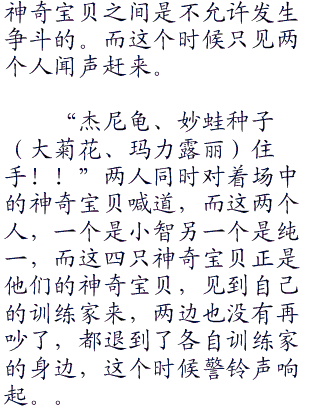 神奇宝贝之间是不允许发生
争斗的。而这个时候只见两
个人闻声赶来。
“杰尼龟、妙蛙种子
（大菊花、玛力露丽）住
手！！”两人同时对着场中
的神奇宝贝喊道，而这两个
人，一个是小智另一个是纯
一，而这四只神奇宝贝正是
他们的神奇宝贝，见到自己
的训练家来，两边也没有再
吵了，都退到了各自训练家
的身边，这个时候警铃声响
起。。